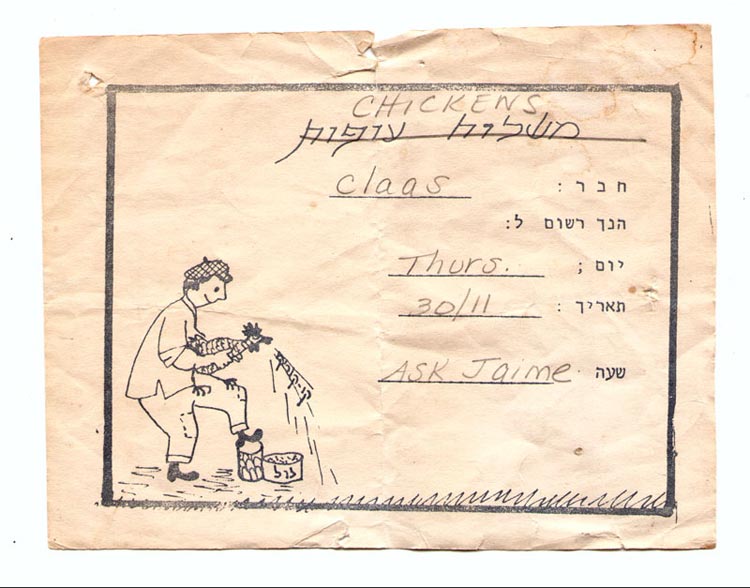 CHICKENS
משלוח עופות
חבר : Claas
הנך רשום ל:
יום ; Thurs.
תאריך : 30/11
שעה ASK Jaime
לול